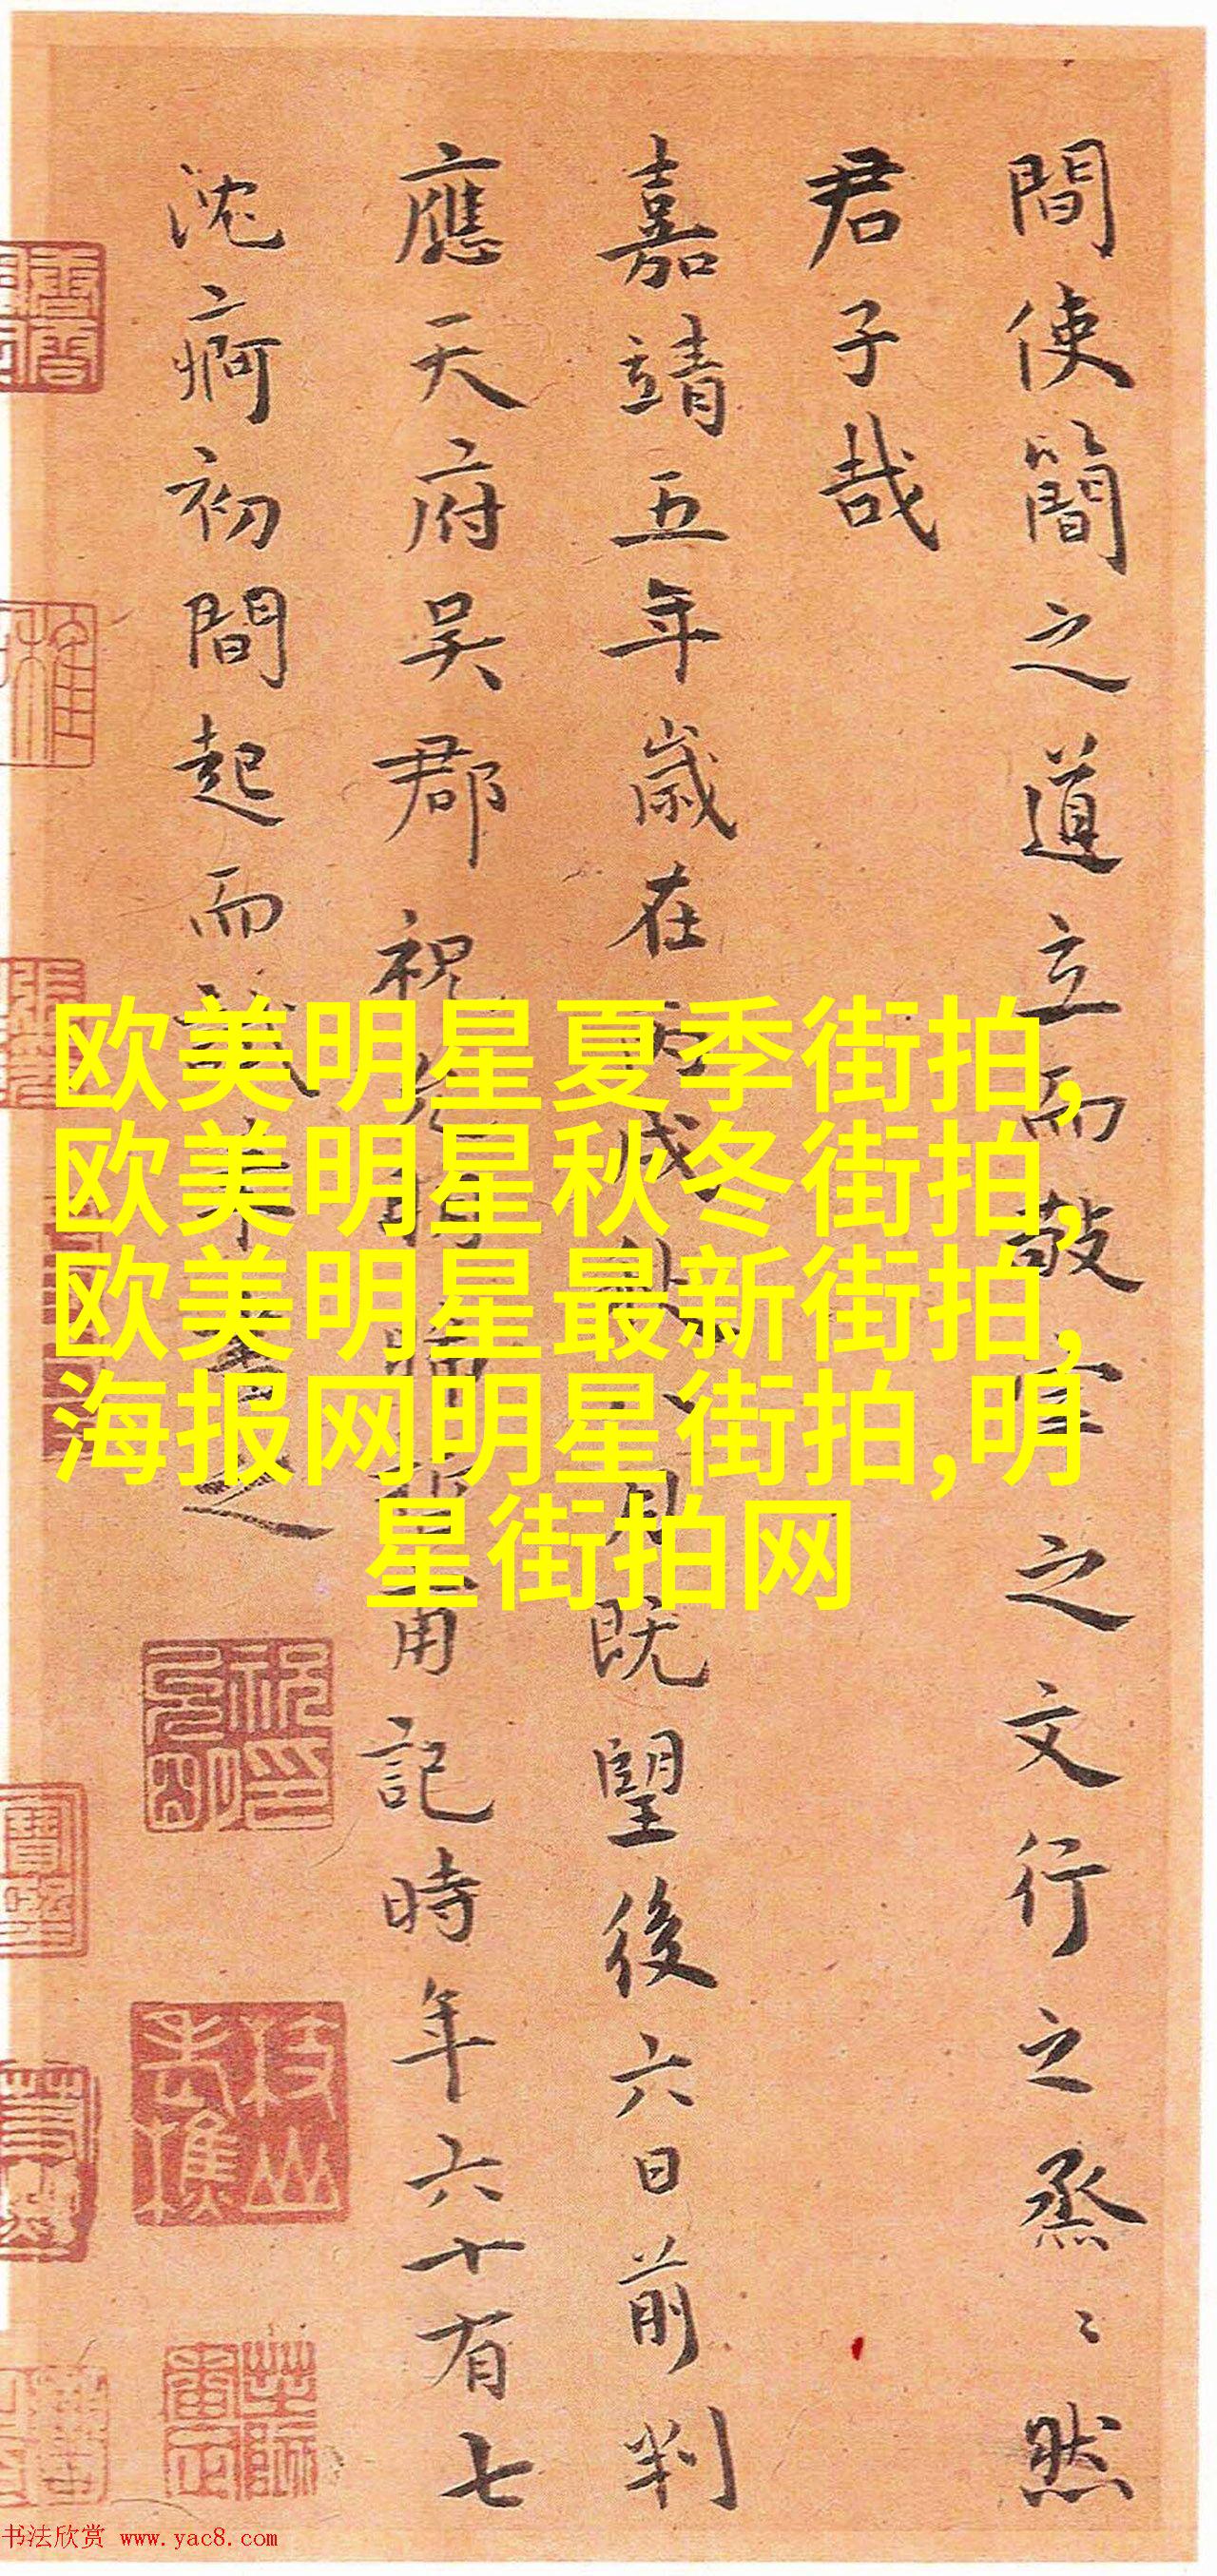 間使簡之道立而之文行之烝〻然
君子哉
嘉靖五年歲在丙戌月既望後六日前判
應天府吳郡祝允明甫記時年六十有七
沈痾初間起而書之
欧美明星夏季街拍,
欧美明星秋冬街拍,
欧美明星最新街拍,
海报网明星街拍,明
星街拍网
书法欣赏 www.yac8.com